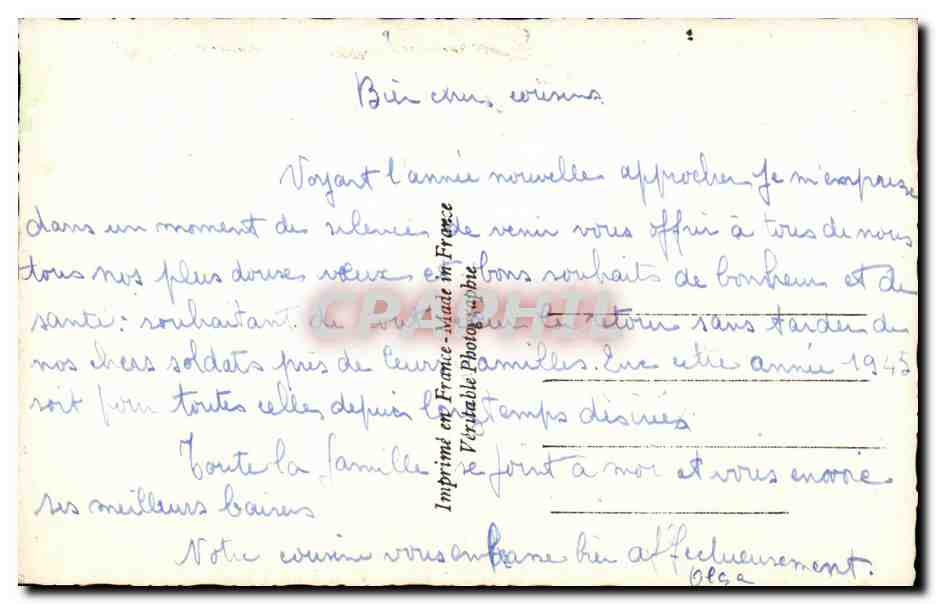 Bien chers cousins
Voyant l'année nouvelle approcher, je m'empresse
dans un moment de silence de venir vous offrir à tous de nous
tous nos plus doux vœux et bons souhaits de bonheur et de
santé: souhaitant de tout cœur le retour sans tarder de
nos chers soldats près de leurs familles. Que cette année 1945
soit pour toutes celles depuis longtemps désirées
Toute la famille se joint à moi et vous envoie
ses meilleurs baisers
Votre cousine vous embrasse bien affectueusement.
Olga
Imprimé en France - Made in France
Véritable Photographie
CPARHTI